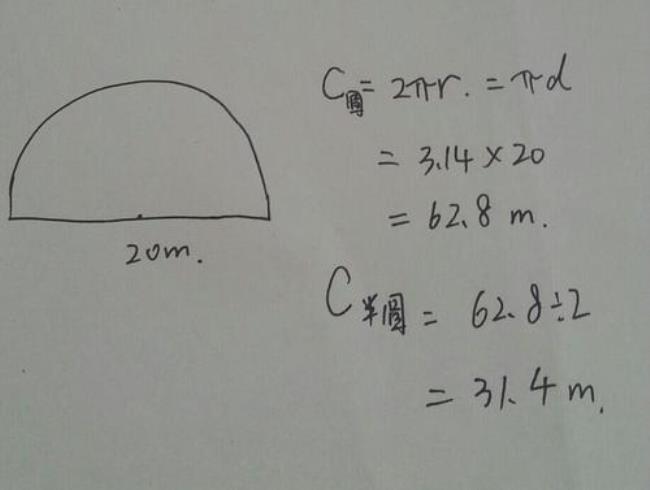 20m.
C圆 = 2πr. = πd
= 3.14 × 20
= 62.8 m.
C半圆 = 62.8÷2
= 31.4 m.